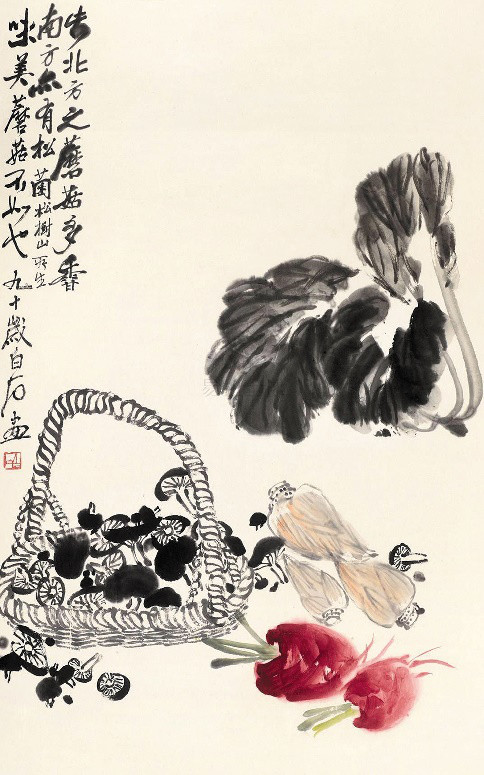 北方之蘑菇多香
南方亦有松菌松樹山所生
味美蘑菇不如也九十歲白石畫